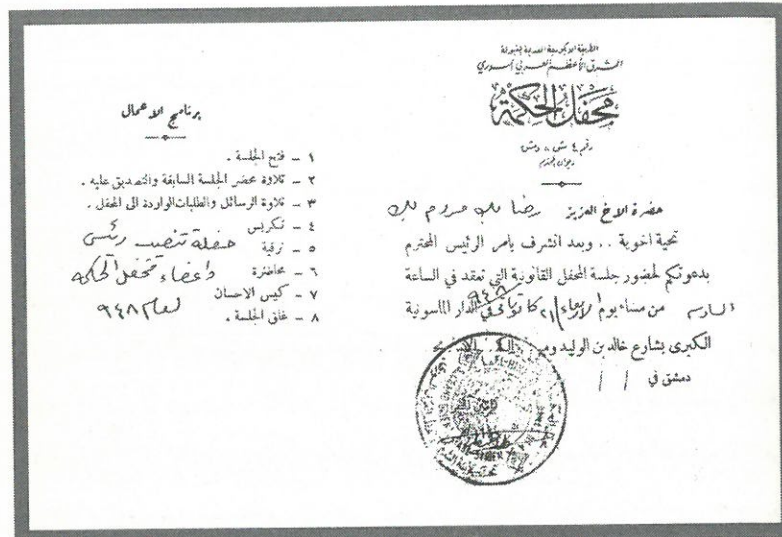 المشرق الأعظم العربي السوري
محفل الحكمة
رقم ٤ ش دمشق
حضرة الاخ العزيز رضا بك مردم بك
تحية اخوية .. وبعد اتشرف بامر الرئيس المحترم
بدعوتكم لحضور جلسة المحفل القانونية التي تعقد في الساعة
السادسة من مساء يوم الاربعاء ٢١ ك ٩٤٨ في الدار الماسونية
الكبرى بشارع خالد بن الوليد
دمشق في / /
برنامج الاعمال
١ - فتح الجلسة .
٢ - تلاوة محضر الجلسة السابقة والتصديق عليه .
٣ - تلاوة الرسائل والطلبات الواردة الى المحفل .
٤ - تكريس
٥ - ترقية
٦ - محاضرة
٧ - كيس الاحسان
٨ - غلق الجلسة .
حفلة تنصيب رئيس
واعضاء محفل الحكمة
لعام ٩٤٨